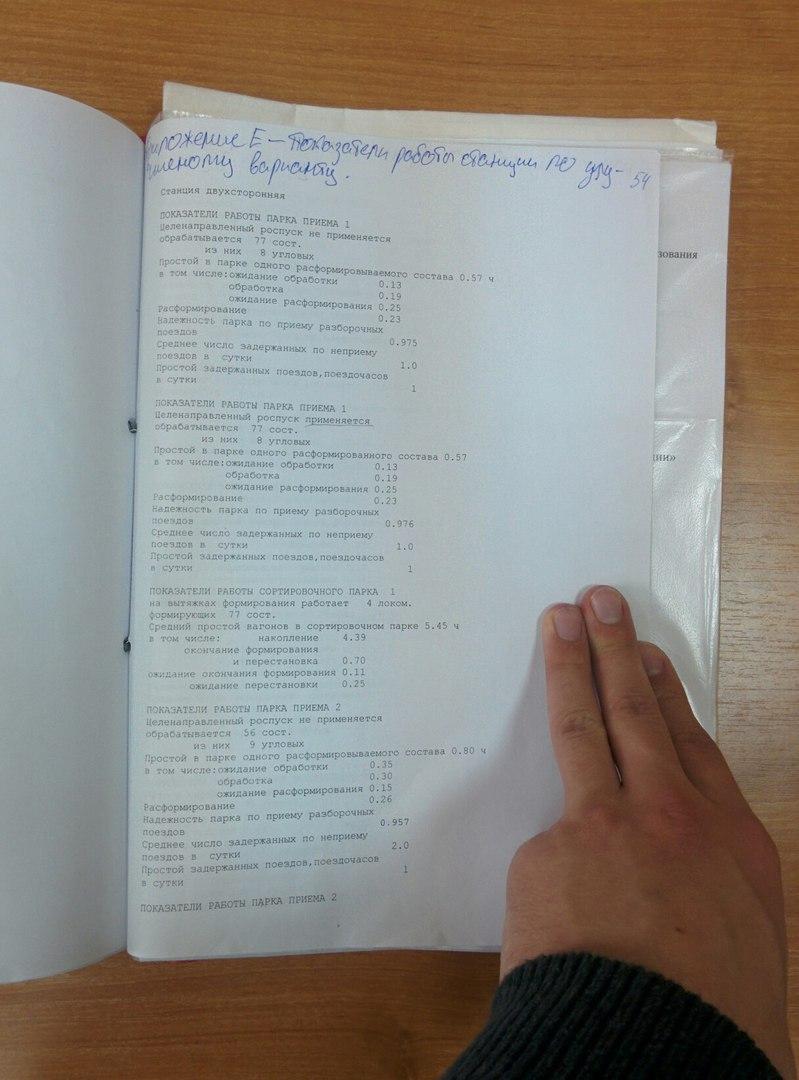 приложение Е – Показатели работы станции по улу-
чшеному варианту.
54
Станция двухсторонняя
ПОКАЗАТЕЛИ РАБОТЫ ПАРКА ПРИЕМА 1
Целенаправленный роспуск не применяется
обрабатывается 77 сост.
из них 8 угловых
Простой в парке одного расформировываемого состава 0.57 ч
в том числе:ожидание обработки 0.13
обработка 0.19
ожидание расформирования 0.25
Расформирование 0.23
Надежность парка по приему разборочных
поездов 0.975
Среднее число задержанных по неприему
поездов в сутки 1.0
Простой задержанных поездов,поездочасов
в сутки 1
ПОКАЗАТЕЛИ РАБОТЫ ПАРКА ПРИЕМА 1
Целенаправленный роспуск применяется
обрабатывается 77 сост.
из них 8 угловых
Простой в парке одного расформированного состава 0.57
в том числе:ожидание обработки 0.13
обработка 0.19
ожидание расформирования 0.25
Расформирование 0.23
Надежность парка по приему разборочных
поездов 0.976
Среднее число задержанных по неприему
поездов в сутки 1.0
Простой задержанных поездов,поездочасов
в сутки 1
ПОКАЗАТЕЛИ РАБОТЫ СОРТИРОВОЧНОГО ПАРКА 1
на вытяжках формирования работает 4 локом.
формирующих 77 сост.
Средний простой вагонов в сортировочном парке 5.45 ч
в том числе: накопление 4.39
окончание формирования
и перестановка 0.70
ожидание окончания формирования 0.11
ожидание перестановки 0.25
ПОКАЗАТЕЛИ РАБОТЫ ПАРКА ПРИЕМА 2
Целенаправленный роспуск не применяется
обрабатывается 56 сост.
из них 9 угловых
Простой в парке одного расформировываемого состава 0.80 ч
в том числе:ожидание обработки 0.35
обработка 0.30
ожидание расформирования 0.15
Расформирование 0.26
Надежность парка по приему разборочных
поездов 0.957
Среднее число задержанных по неприему
поездов в сутки 2.0
Простой задержанных поездов,поездочасов
в сутки 1
ПОКАЗАТЕЛИ РАБОТЫ ПАРКА ПРИЕМА 2
зования
ии»